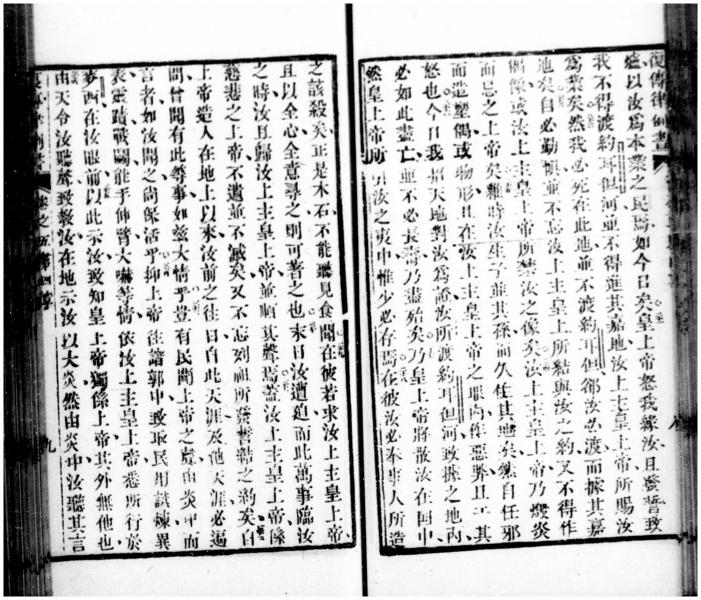 復傳律例書
爐以汝為本業之民焉如今日矣皇上帝怒我緣汝且發誓致
我不得渡約耳但河並不得進其嘉地汝上主皇上帝所賜汝
為業矣然我必死在此地並不渡約耳但卻汝必渡而據其嘉
地矣自必勤慎並不忘汝上主皇上帝所結與汝之約又不得作
偶像或汝上主皇上帝所禁汝之像矣汝上主皇上帝乃燬炎
而忌之上帝矣雖時汝生子並其孫而久住其地矣緣自任邪
而造塑偶或物形且在汝上主皇上帝之眼內作惡弊且其
怒也今日我招天地對汝為證汝所渡約耳但河致據之地內
必如此盡亡並不必長壽乃盡殆矣乃皇上帝將散汝在囯中
然皇上帝所引汝之夷中惟少必存焉在彼汝必奉事人所造
之該殺矣正是木石不能聽見食聞在彼若求汝上主皇上帝
且以全心全意尋之則可著之也末日汝遭迫而此萬事臨汝
之時汝且歸汝上主皇上帝並順其聲焉蓋汝上主皇上帝係
慈悲之上帝不遺並不滅矣又不忘列祖所發誓結之約矣自
上帝造人在地上以來汝前之往日自此天涯及他天涯必遍
問曾聞有此等事如玆大情乎豈有民聞上帝之聲由炎中而
言者如汝聞之尚保活乎抑上帝往諸郭中致取民用試煉異
表靈蹟戰鬬能手伸臂大嚇等情依汝上主皇上帝悉所行於
麥西在汝眼前以此示汝致知皇上帝獨係上帝其外無他也
由天令汝聽聲致教汝在地示汝以大炎然由炎中汝聽其言
卷之五第四章 九